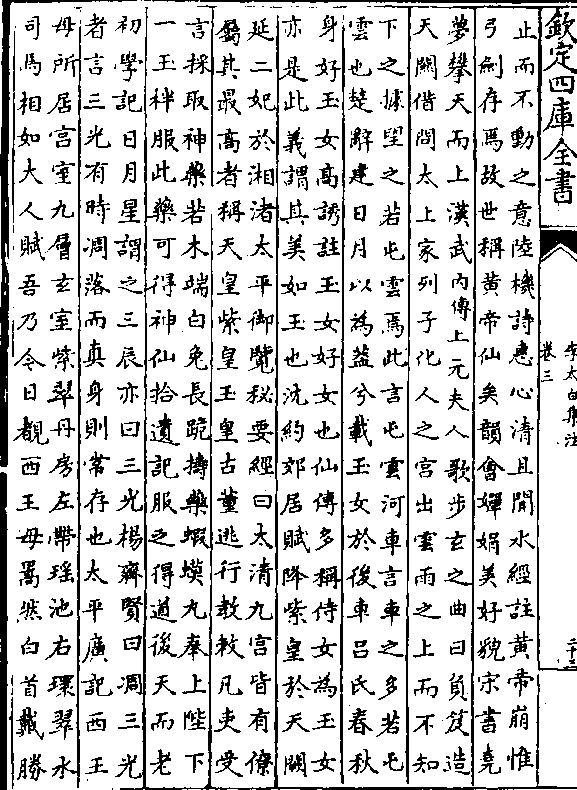 欽定四庫全書
李太白集注
卷三
二十三
止而不動之意陸機詩惠心清且閒水經註黄帝崩惟
弓劍存焉故世稱黄帝仙矣韻會嬋娟美好貌宋書堯
夢攀天而上漢武内傳上元夫人歌步玄之曲曰負笈造
天闗借問太上家列子化人之宮出雲雨之上而不知
下之據望之若屯雲焉此言屯雲河車言車之多若屯
雲也楚辭建日月以為蓋兮載玉女於後車吕氏春秋
身好玉女高誘註玉女好女也仙傳多稱侍女為玉女
亦是此義謂其美如玉也沈約郊居賦降紫皇於天闕
延二妃於湘渚太平御覽秘要經曰太清九宮皆有僚
屬其最高者稱天皇紫皇玉皇古董逃行教敕凡吏受
言採取神藥若木端白兔長跪擣藥蝦蟆丸奉上陛下
一玉柈服此藥可得神仙拾遺記服之得道後天而老
初學記日月星謂之三辰亦曰三光楊齊賢曰凋三光
者言三光有時凋落而真身則常存也太平廣記西王
母所居宮室九層玄室紫翠丹房左帶瑶池右環翠水
司馬相如大人賦吾乃今日覩西王母暠然白首戴勝